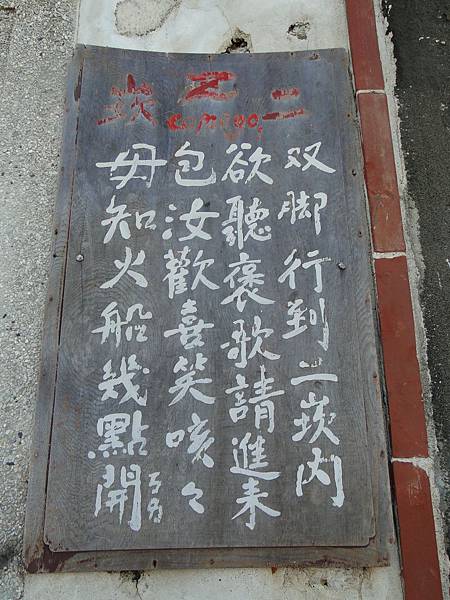 二崁
双脚行到二崁内
欲聽褒歌請進來
包汝歡喜笑咳々
毋知火船幾點開